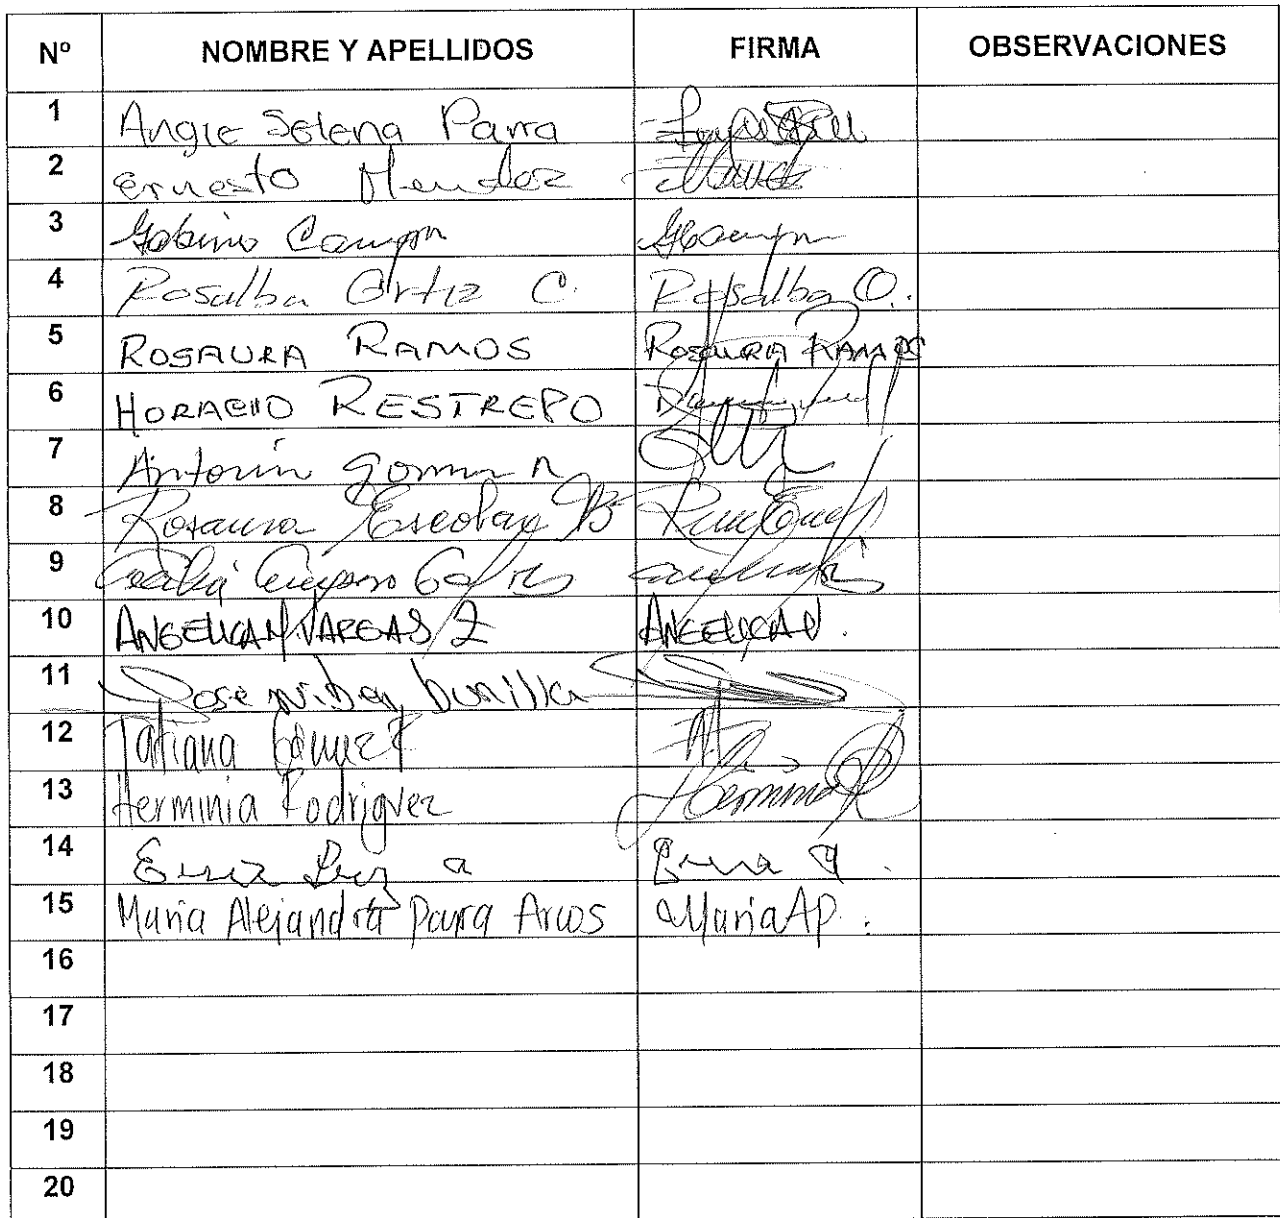 Nº NOMBRE Y APELLIDOS FIRMA OBSERVACIONES
1 Angie Selena Parra
2 Ernesto Mendoz
3 Gabino Campo
4 Rosalba Ortiz C. Rosalba O.
5 ROSAURA RAMOS ROSAURA RAMOS
6 HORACIO RESTREPO
7 Antonin Gomez R
8 Rosaura Escobar B
9 Cecilia
10 ANGELICA M. VARGAS ANGELICA V.
11 Jose bonilla
12 Tatiana Gamez
13 Herminia Rodriguez Herminia R
14 Luz a
15 Maria Alejandra Parra Arcos Maria AP.
16
17
18
19
20